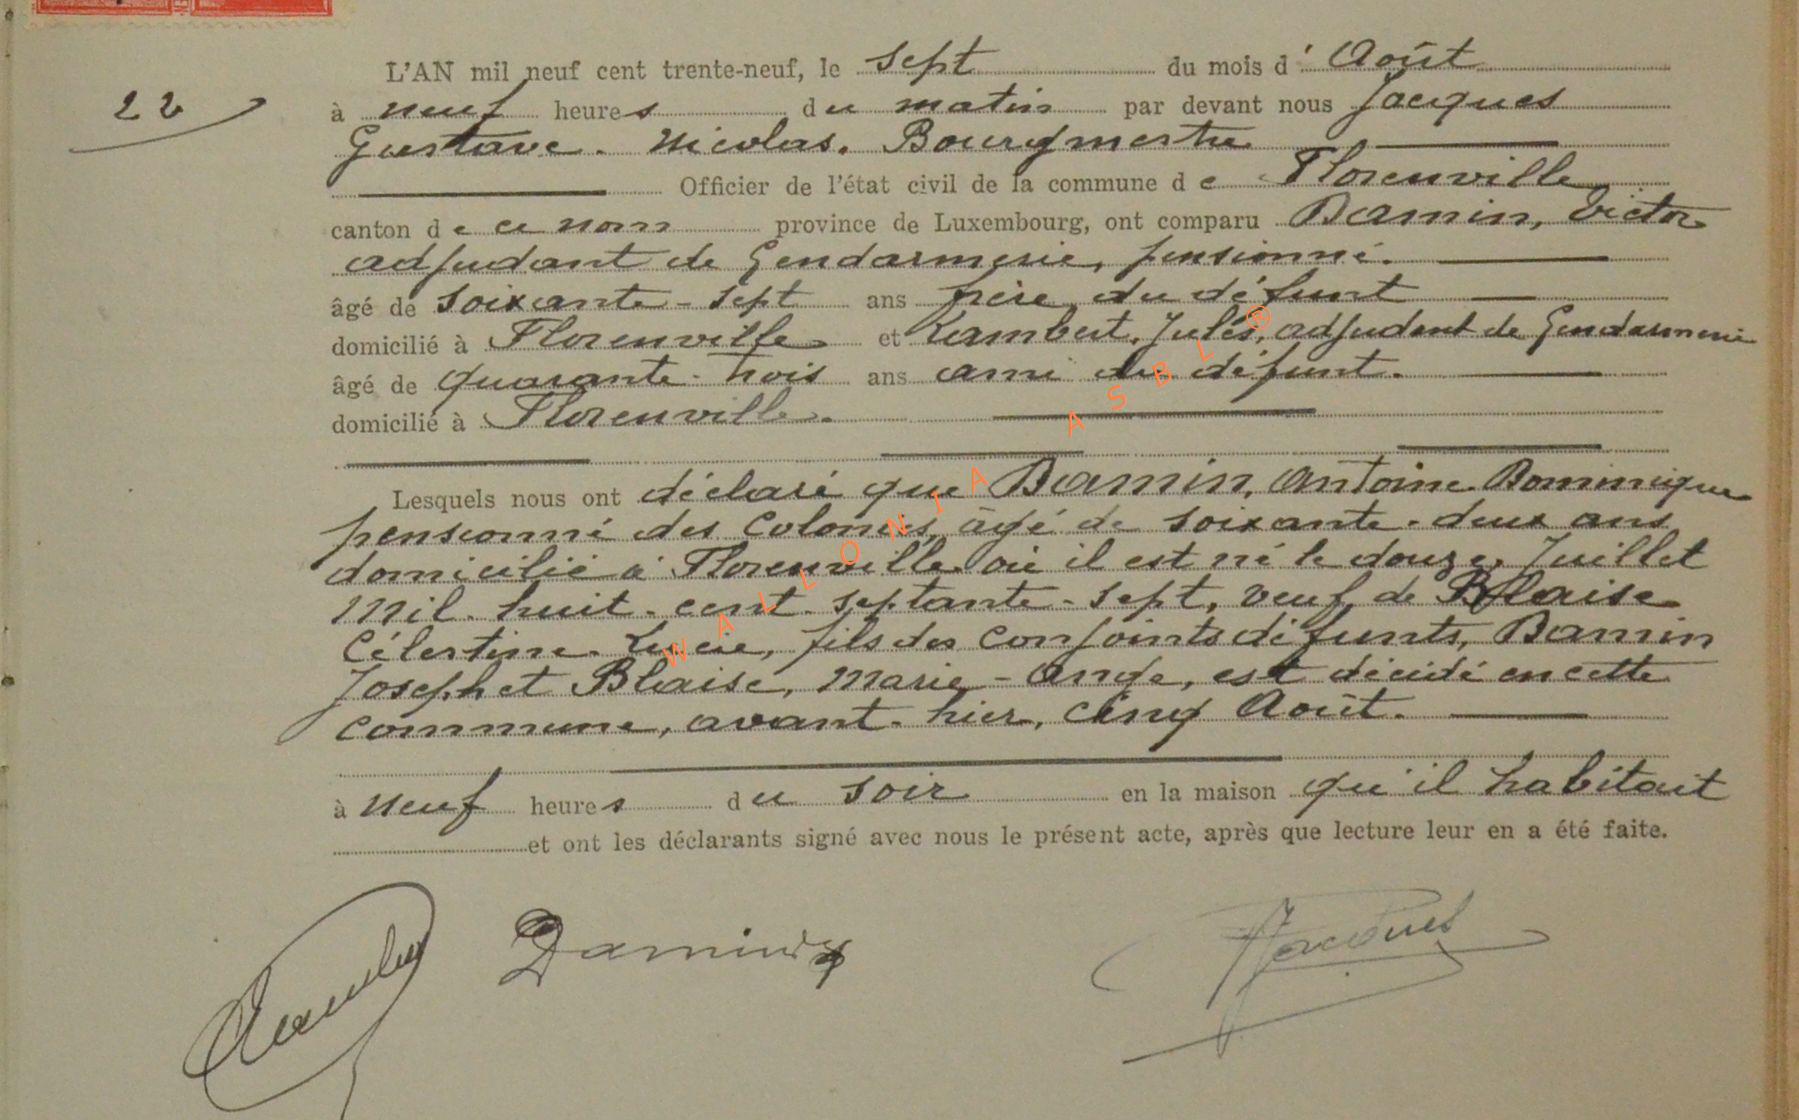 L'AN mil neuf cent trente-neuf, le sept du mois d' Août
22
à neuf heures du matin par devant nous Jacques
Gustave. Nicolas. Bourgmestre
Officier de l'état civil de la commune de Florenville
canton de ce nom province de Luxembourg, ont comparu Damin, Victor
adjudant de Gendarmerie, pensionné.
âgé de soixante-sept ans frère du défunt
domicilié à Florenville et Lambert, Jules, adjudant de Gendarmerie
âgé de quarante-trois ans ami du défunt.
domicilié à Florenville.
Lesquels nous ont déclaré que Damin, Antoine Dominique
pensionné des Colonies, âgé de soixante-deux ans
domicilié à Florenville où il est né le douze Juillet
mil-huit-cent-septante-sept, veuf de Blaise
Célestine-Lucie, fils des conjoints défunts, Damin
Joseph et Blaise, Marie-Ange, est décédé en cette
commune, avant-hier, cinq Août.
à neuf heures du soir en la maison qu'il habitait
et ont les déclarants signé avec nous le présent acte, après que lecture leur en a été faite.
Damin
Jacques
WALLONIA ASBL ®